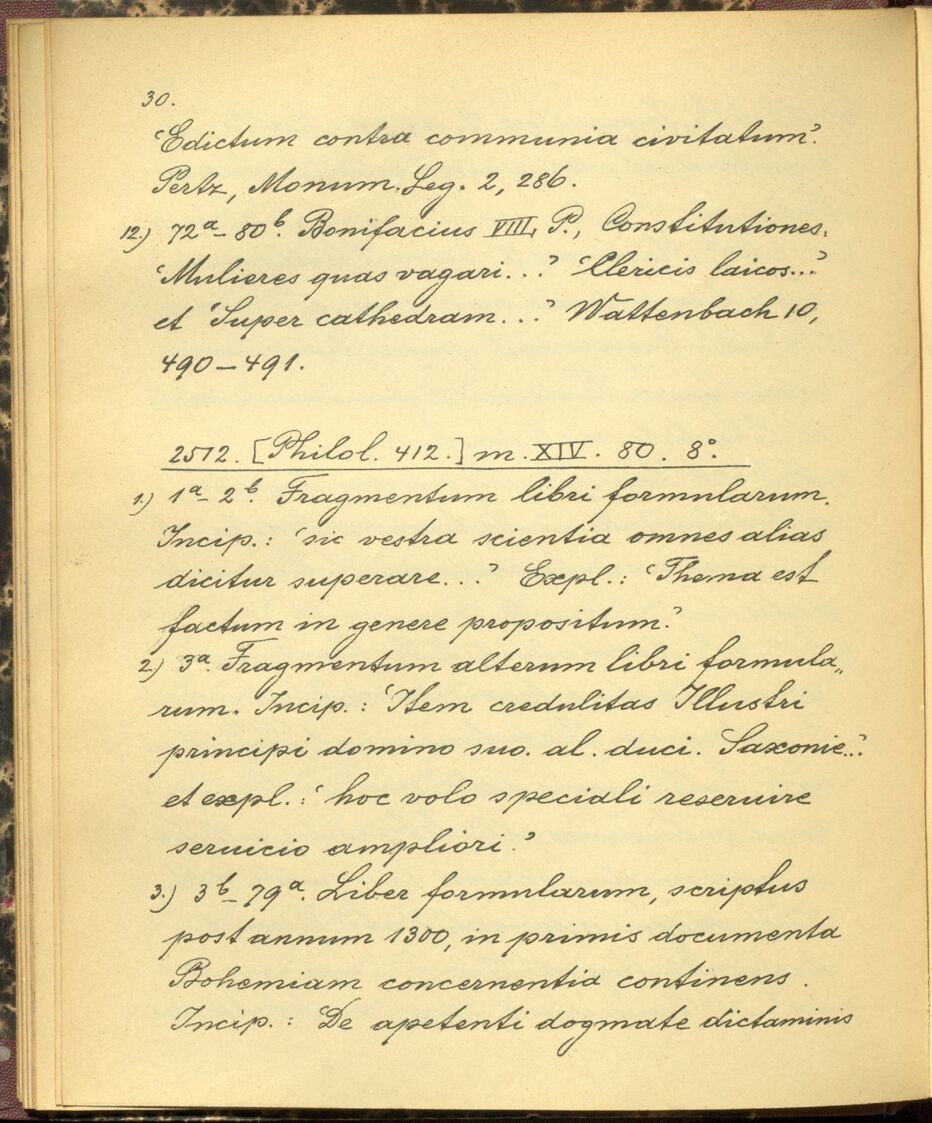 30.
‘Edictum contra communia civitatum’.
Pertz, Monum. Leg. 2, 286.
12.) 72ª–80ᵇ. Bonifacius VIII, P., Constitutiones.
‘Mulieres quas vagari...’ ‘Clericis laicos...’
et ‘Super cathedram...’ Wattenbach 10,
490–491.
2512. [Philol. 412.] m. XIV. 80. 8°.
1.) 1ª–2ᵇ. Fragmentum libri formularum.
Incip.: ‘sic vestra scientia omnes alias
dicitur superare...’ Expl.: ‘Thema est
factum in genere propositum.’
2.) 3ª. Fragmentum alterum libri formula„
rum. Incip.: ‘Item credulitas Illustri
principi domino suo. al. duci. Saxonie...’
et expl.: ‘hoc volo speciali reseruire
seruicio ampliori.’
3.) 3ᵇ–79ª. Liber formularum, scriptus
post annum 1300, in primis documenta
Bohemiam concernentia continens.
Incip.: ‘De apetenti dogmate dictaminis